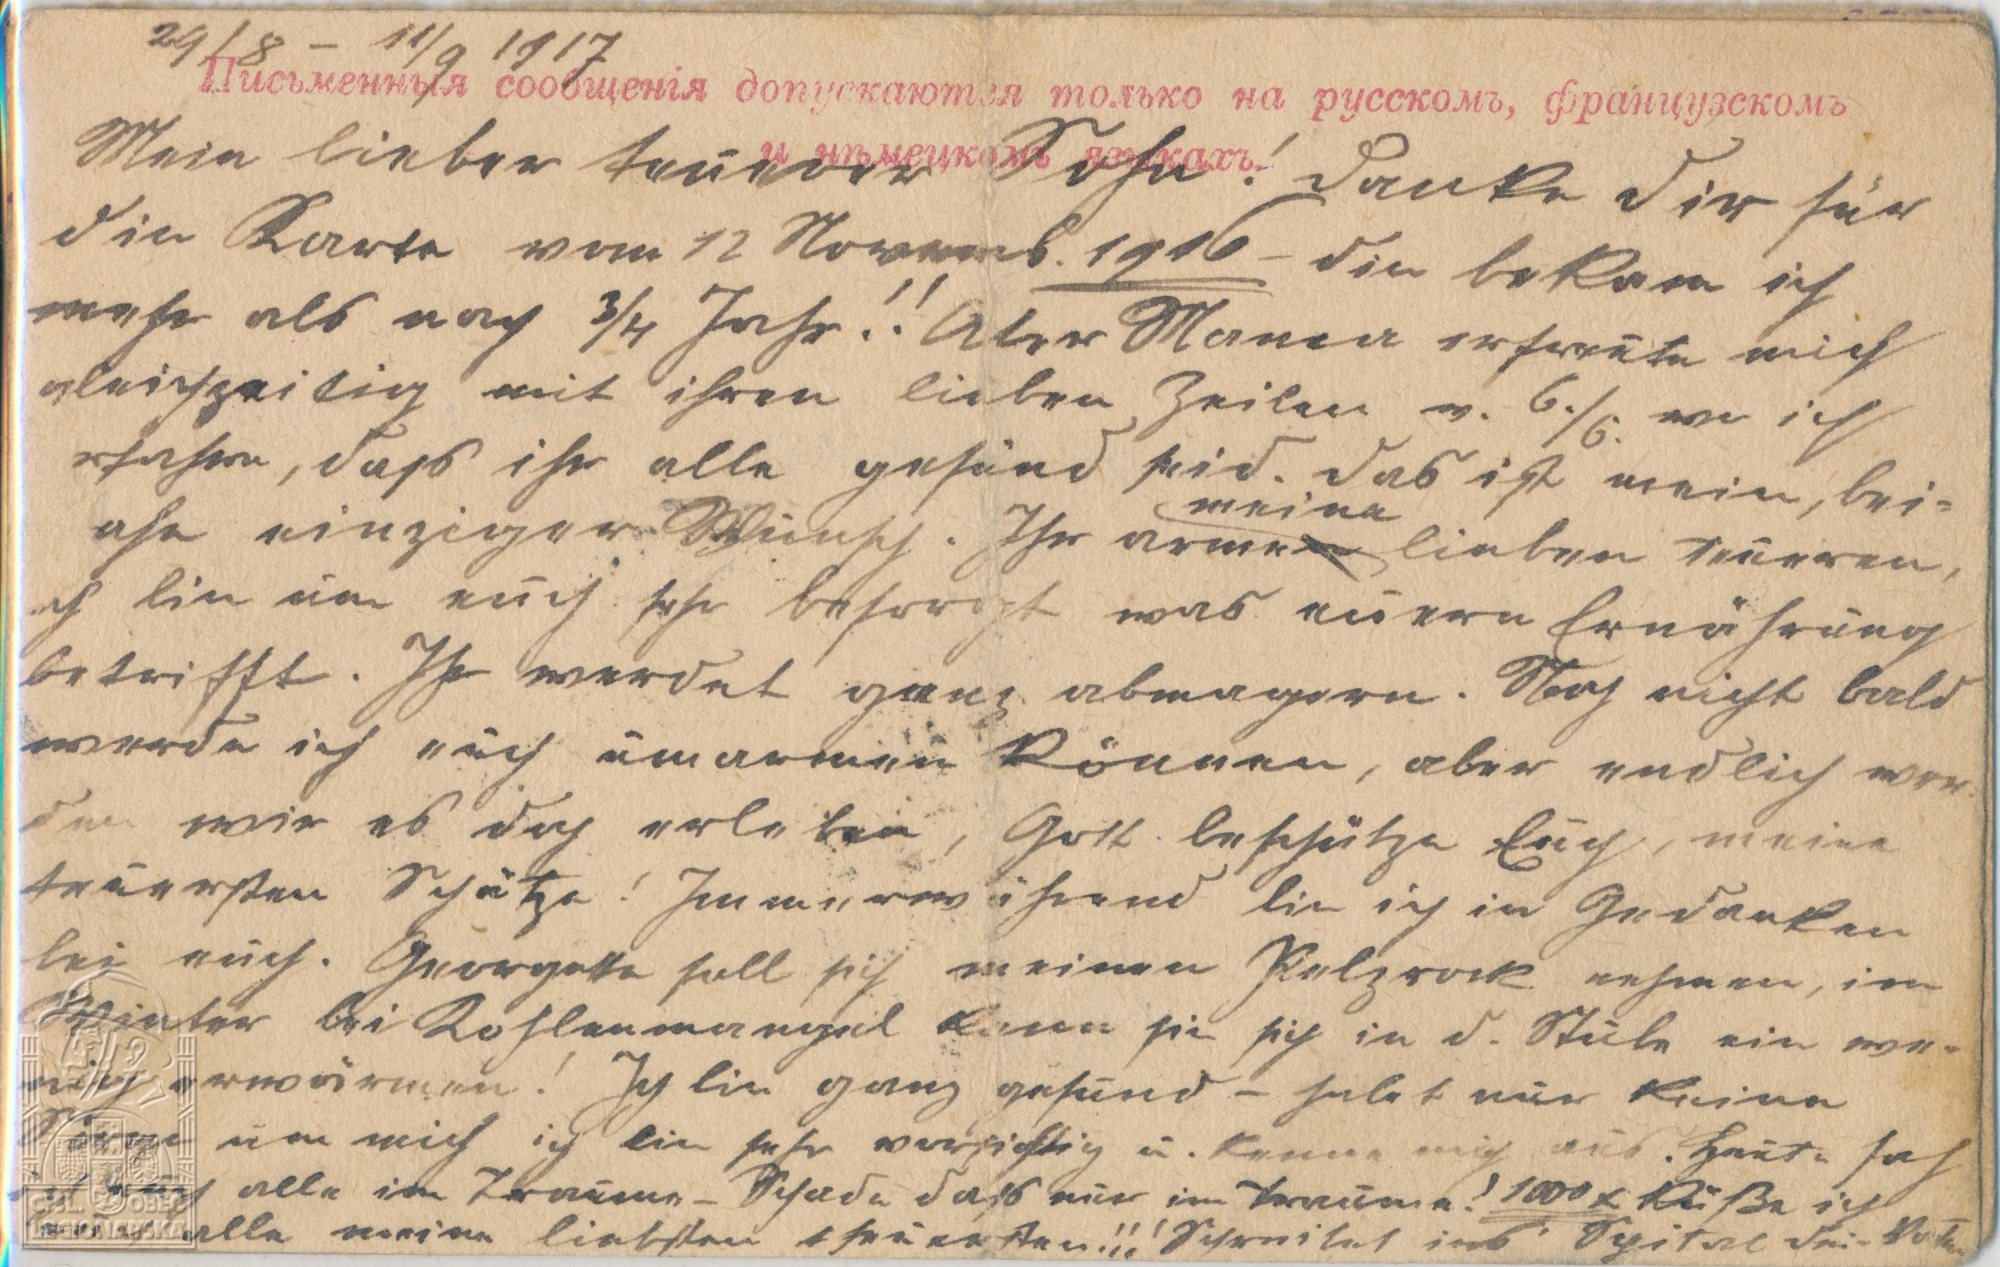 29/8 – 11/9 1917
Письменныя сообщенія допускаются только на русскомъ, французскомъ
и нѣмецкомъ языкахъ.
Mein lieber teuerer Sohn! Danke Dir für
die Karte vom 12 Novemb. 1916 – die bekam ich
mehr als nach 3/4 Jahr!! Aber Mama erfreute mich
gleichzeitig mit ihren lieben Zeilen v. 6./6. wo ich
erfahre, daß ihr alle gesund seid. Das ist mein, bei-
ahe einziger Wunsch. Ihr arme meine lieben teueren,
ich bin um euch sehr besorgt was euere Ernährung
betrifft. Ihr werdet ganz abmagern. Noch nicht bald
werde ich euch umarmen können, aber endlich wer-
den wir es doch erleben, Gott beschütze Euch, meine
teuersten Schätze! Immerwährend bin ich in Gedanken
bei euch. Georgette soll sich meinen Pelzrock nehmen, im
Winter bei Kohlenmangel kann sie sich in d. Stube ein we-
nig erwärmen! Ich bin ganz gesund – habet nur keine
um mich ich bin sehr vorsichtig u. kenne mich aus. Heute sah
ich euch alle im Traume – Schade daß nur im Traume! 1000 x Küße ich
euch alle meine liebsten theuersten!!! Schreibet ins Spital Dein Vater
ČSL. OBEC
LEGIONÁŘSKÁ